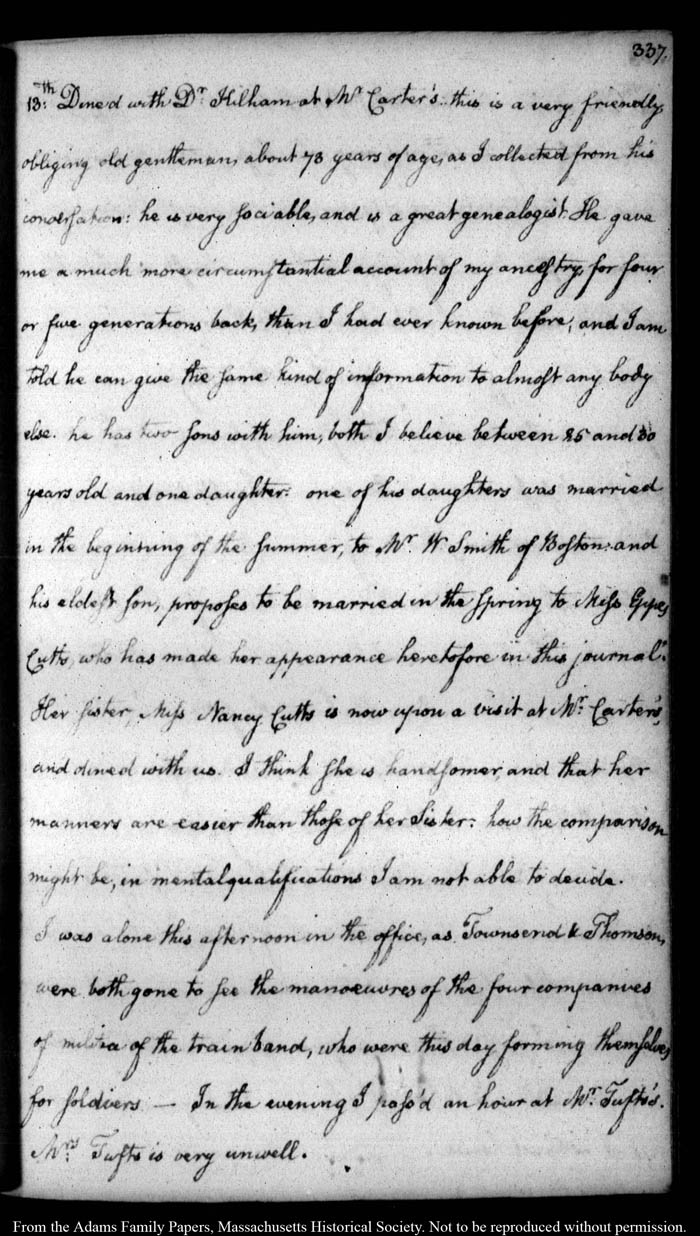 337.
13:th Dined with Dr. Kilham at Mr. Carter's: this is a very friendly,
obliging old gentleman, about 73 years of age, as I collected from his
conversation: he is very sociable, and is a great genealogist. He gave
me a much more circumstantial account of my ancestry, for four
or five generations back, than I had ever known before, and I am
told he can give the same kind of information to almost any body
else. he has two sons with him, both I believe between 25 and 30
years old and one daughter: one of his daughters was married
in the beginning of the summer, to Mr. W Smith of Boston: and
his eldest son, proposes to be married in the spring to Miss
Cutts, who has made her appearance heretofore in this journal.
Her sister, Miss Nancy Cutts is now upon a visit at Mr. Carter's,
and dined with us. I think she is handsomer, and that her
manners are easier than those of her Sister: how the comparison
might be, in mental qualifications I am not able to decide.
I was alone this afternoon in the office, as Townsend & Thomson,
were both gone to see the manoeuvres of the four companies
of militia of the train band, who were this day forming themselves
for soldiers — In the evening I pass'd an hour at Mr. Tufts's.
Mrs. Tufts is very unwell.
From the Adams Family Papers, Massachusetts Historical Society. Not to be reproduced without permission.